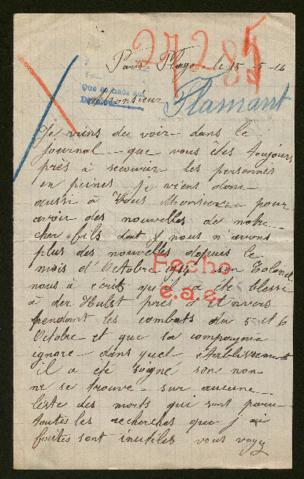 27285
Paris Plage le 15-5-16
Monsieur
Flamant
Je viens de voir dans le
Journal que vous êtes toujours
près à secourir les personnes
en peines je viens donc
aussi à Vous Monsieur pour
avoir des nouvelles de notre
cher fils dont nous n'avons
plus des nouvelles depuis le
mois d'Octobre que son Colonel
nous à écrit qu'il a été blessé
Fecho
e.a.e.
à der Hulst près d'Anvers
pendant les combats du 5 et 6
Octobre et que la compagnie
ignore dans quel établissement
il a été soigné son nom
ne se trouve sur aucune
liste des morts qui sont paru
toutes les recherches que j'ai
faites sont inutiles vous voyez